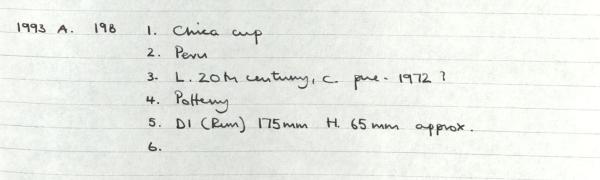 1993 A. 198 1. Chica cup
2. Peru
3. L. 20th century, c. pre-1972?
4. Pottery
5. DI (Rim) 175mm H. 65mm approx.
6.